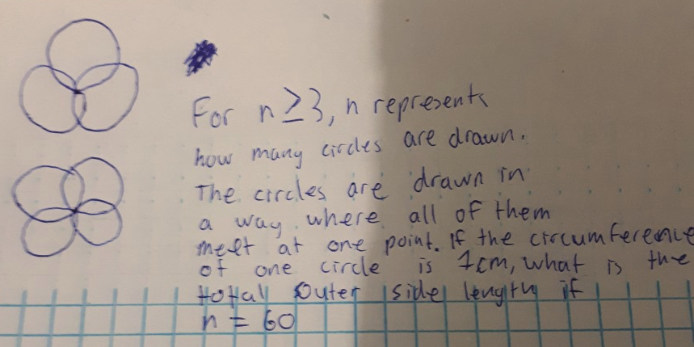 For n ≥ 3, n represents
how many circles are drawn.
The circles are drawn in
a way where all of them
meet at one point. If the circumference
of one circle is 1cm, what is the
tottal outer side length if
n = 60